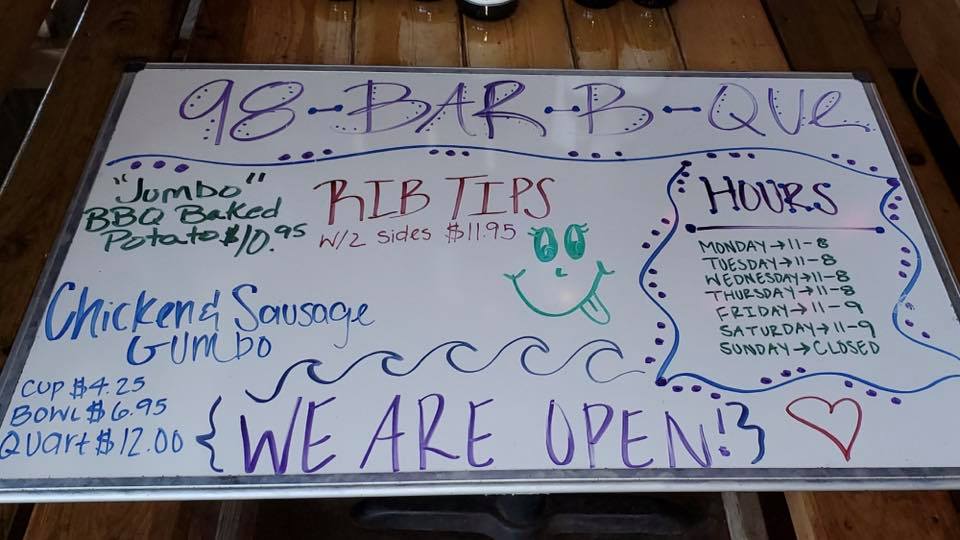 98-BAR-B-QUE
"Jumbo"
BBQ Baked
Potato $10.95
RIB TIPS
W/2 sides $11.95
HOURS
MONDAY→11-8
TUESDAY→11-8
WEDNESDAY→11-8
THURSDAY→11-8
FRIDAY→11-9
SATURDAY→11-9
SUNDAY→CLOSED
Chicken & Sausage
GUMBO
CUP $4.25
BOWL $6.95
QUART $12.00
{WE ARE OPEN!}